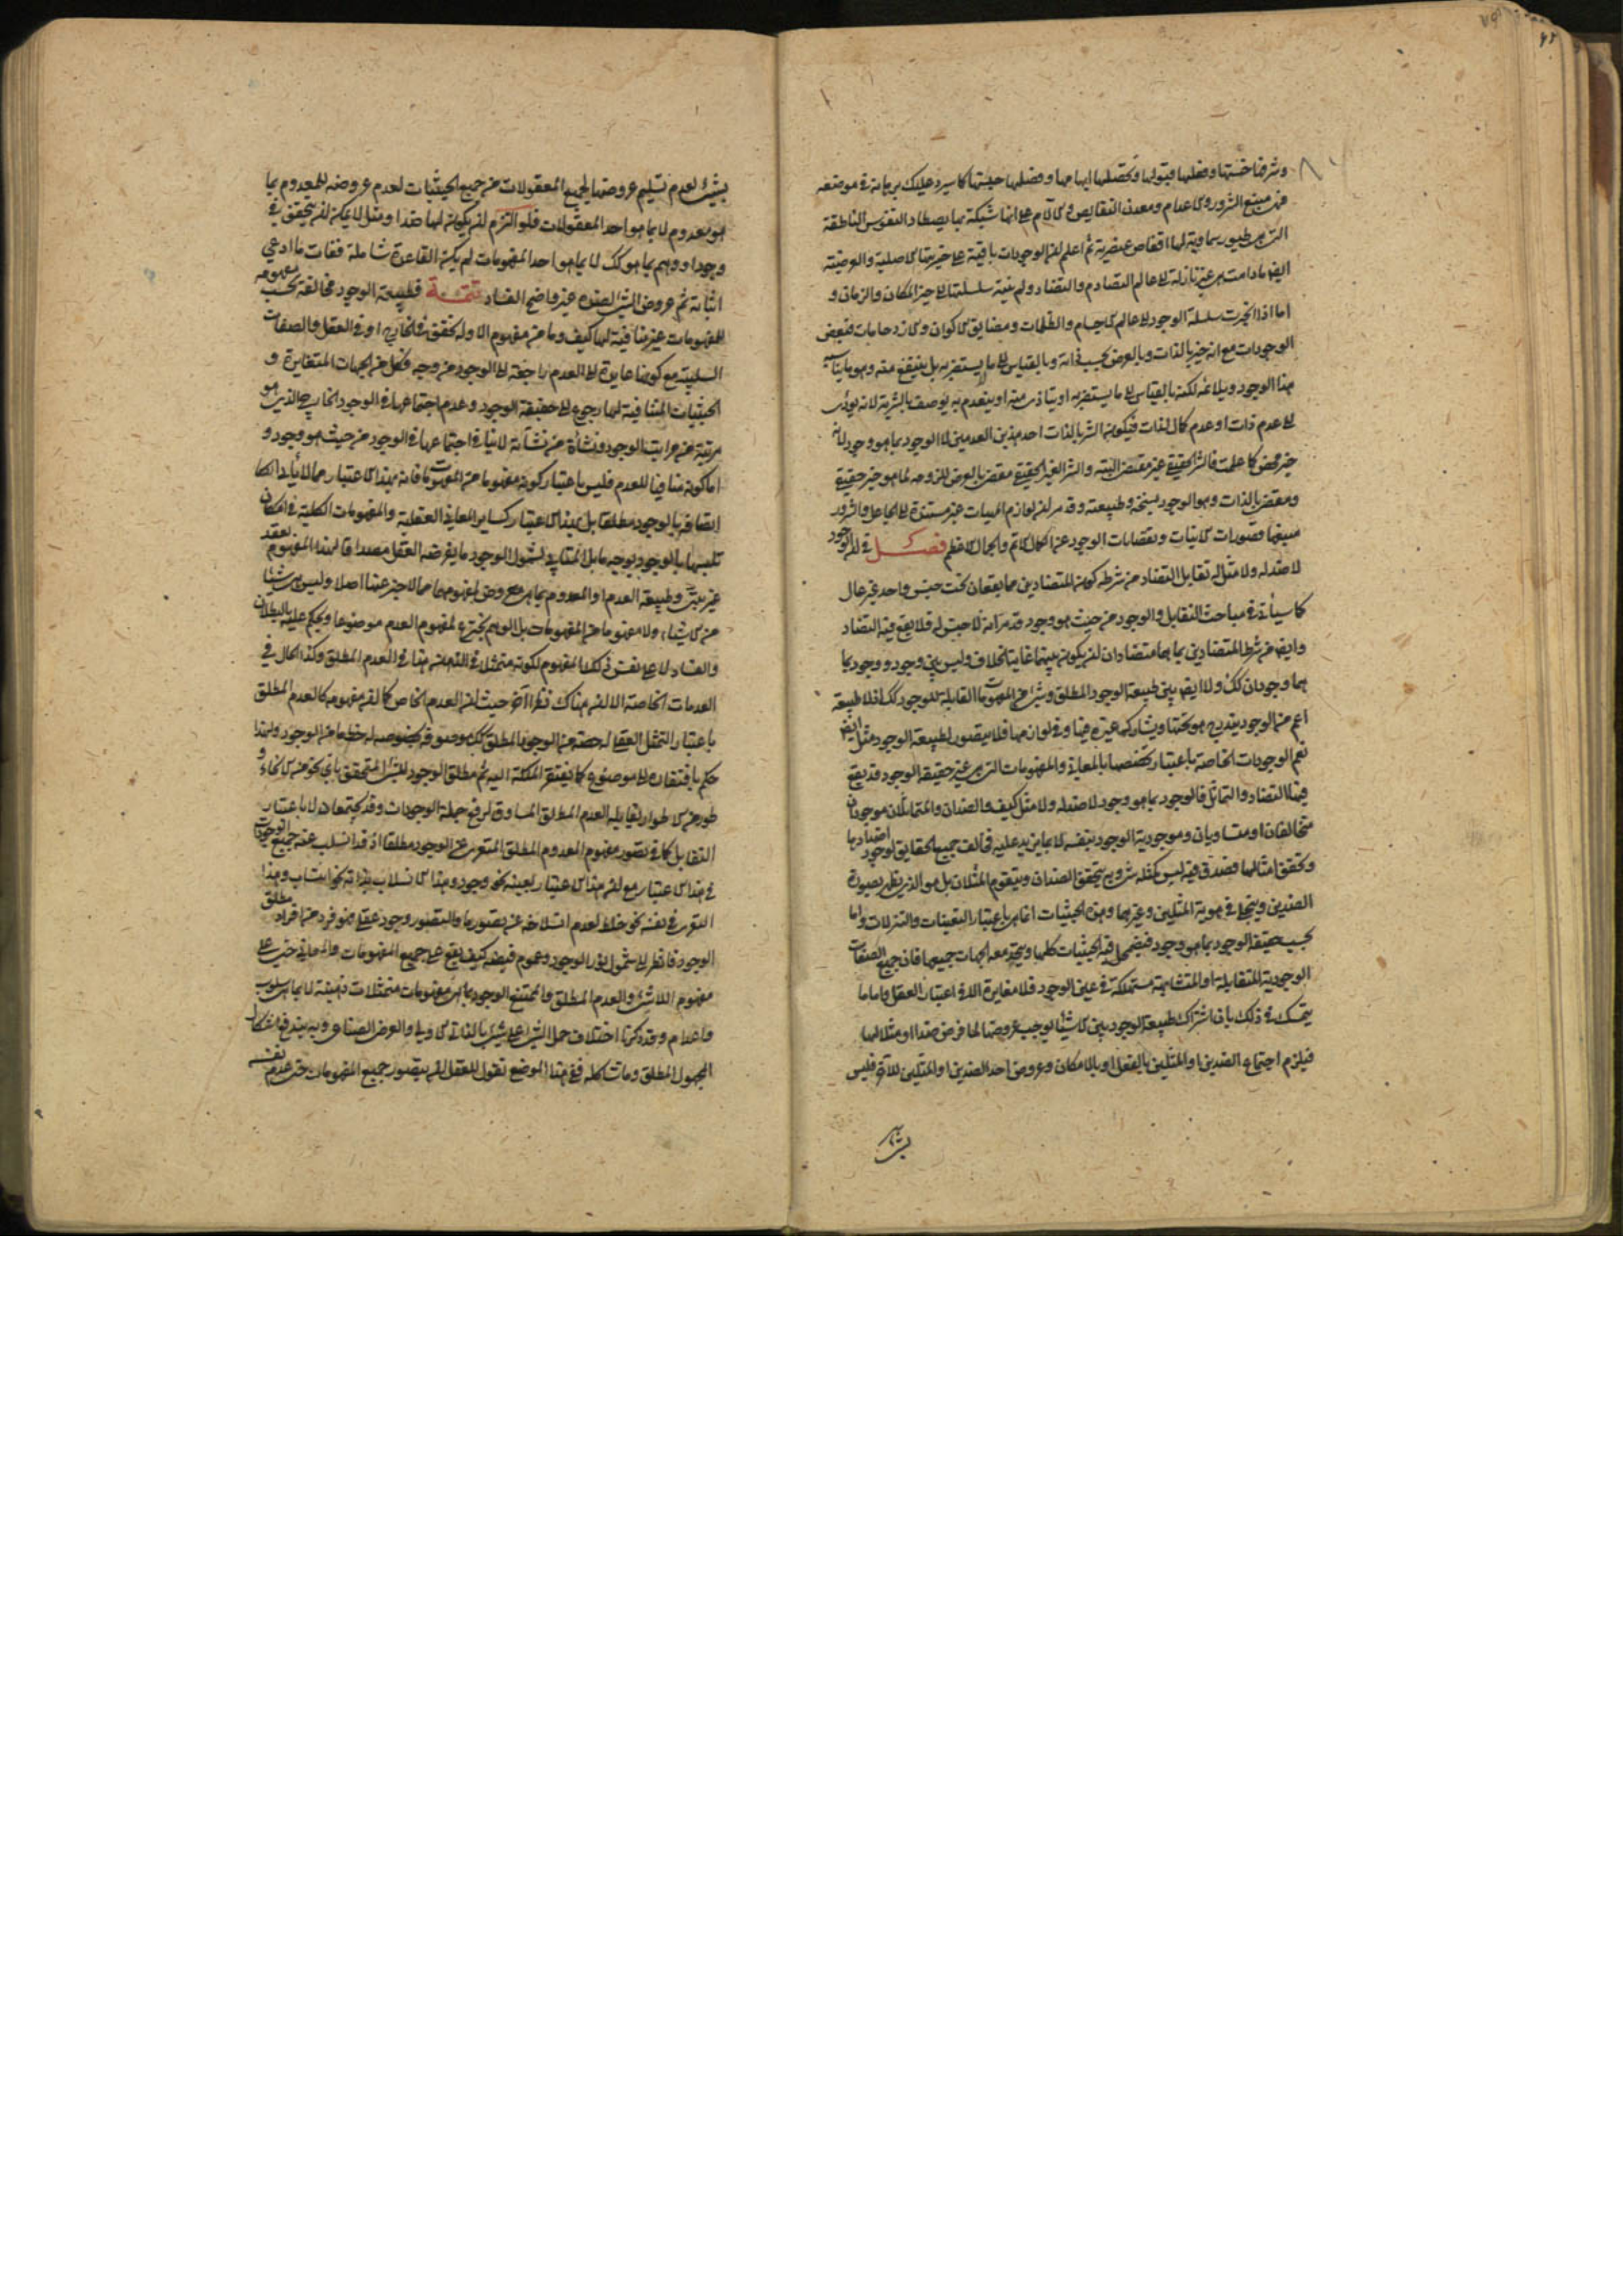 وشرفها خستها وفعلها قبولها وتحصلها ابهامها وفضلها حيثيتها كما سيرد عليك برهانه في موضعه
فهى منبع الشرور والاعدام ومعدن النقايص والآلام على انها شبكة بها يصطاد النفوس الناطقة
التى هى طيور سماوية لها اقفاص عنصرية ثم اعلم ان الوجودات باقية على خيريتها الاصلية والعرضية
ايض مادامت هى غير نازلة الى عالم التصادم والتضاد ولم ينته سلسلتها الى حيز المكان والزمان و
اما اذا انجرت سلسلة الوجود الى عالم الاجسام والظلمات ومضايق الاكوان والازدحامات فبعض
الوجودات مع انه خير بالذات وبالعرض بحسب ذاته وبالقياس الى ما لا يستضر به بل ينتفع منه وهو ما يناسبه
هذا الوجود ويلائمه لكنه بالقياس الى ما يستضر به او يتاذى منه او ينعدم به يوصف بالشرية لانه يؤدى
الى عدم ذات او عدم كمال لذات فيكون الشر بالذات احد هذين العدمين لا الوجود بما هو وجود لانه
خير محض كما علمت فالشر الحقيقي غير مقتضى البتة والشر الغير الحقيقي مقضى بالعرض للزومه لما هو خير حقيقي
ومقضى بالذات وهو الوجود بسنخه وطبيعته وقد مر ان لوازم المهيات غير مستندة الى الجاعل والشرور
منبعها قصورات الانيات ونقصانات الوجود عن الكمال الاتم والجمال الاعظم فصل في ان الوجود
لا ضد له ولا مثل له تقابل التضاد من شرطه كون المتضادين مما يقعان تحت جنس واحد غير عال
كما سيأتى في مباحث التقابل والوجود من حيث هو وجود قد مر انه لا جنس له فلا يقع فيه التضاد
وايض من شرط المتضادين بما هما متضادان ان يكون بينهما غاية الخلاف وليس بين وجود ووجود بما
هما وجودان كك ولا ايض بين طبيعة الوجود المطلق وشئ من المفهومات القابلة للوجود كك اذ لا طبيعة
اعم من الوجود يندرج هو تحتها ويشارك ما غيره فيها وفي لوازمها فلا يتصور لطبيعة الوجود مثل ايض
نعم الوجودات الخاصة باعتبار تخصصها بالمعانى والمفهومات التى هى غير حقيقة الوجود قد يقع
فيها التضاد والتماثل فالوجود بما هو وجود لا ضد له ولا مثل كيف والضدان والمتماثلان موجودان
متخالفان او متساويان وموجودية الوجود بنفسه لا بما يزيد عليه فخالف جميع الحقايق لوجود اضدادها
وتحقق امثالها فصدق فيه ليس كمثله شئ وبه يتحقق الضدان ويتقوم المثلان بل هو الذى يظهر بصورة
الضدين ويتجلى في هوية المثلين وغيرهما وهذه الحيثيات انما هى باعتبار التعينات والتنزلات واما
بحسب حقيقة الوجود بما هو وجود فيضمحل فيه الحيثيات كلها ويتحد معه الجهات جميعها فان جميع الصفات
الوجودية المتقابلة او المتشابهة مستهلكة في عين الوجود فلا مغايرة الا في اعتبار العقل واما ما
يتمسك في ذلك بان اشتراك طبيعة الوجود بين الاشياء يوجب عروضها لما فرض ضدا او مثلا لها
فيلزم اجتماع الضدين او المثلين بالفعل او بالامكان وعروض احد الضدين او المثلين للآخر فليس
بشئ
بشئ لعدم تسليم عروضها لجميع المعقولات من جميع الحيثيات لعدم عروضه للمعدوم بما
هو معدوم لا بما هو احد المعقولات فلو التزم ان يكون لها ضدا ومثل لا يمكن ان يتحقق في
وجود او وهم بما هو كك لا بما هو احد المفهومات لم يكن القاعدة شاملة ففات ما ادعى
اثباته ثم عروض الشئ لضده غير واضح الفساد تتمة فطبيعة الوجود مخالفة بحسب مفهومه
للمفهومات غير منافية لها كيف وما من مفهوم الا وله تحقق في الخارج او في العقل والصفات
السلبية مع كونها عايدة الى العدم راجعة الى الوجود من وجه وكل من الجهات المتغايرة و
الحيثيات المتنافية لها رجوع الى حقيقة الوجود وعدم اجتماعها في الوجود الخارجى الذى هو
مرتبة من مراتب الوجود ونشأة من نشآته لا ينافى اجتماعها في الوجود من حيث هو وجود و
اما كونه منافيا للعدم فليس باعتبار كونه مفهوما من المفهومات فانه بهذا الاعتبار مما لا يأبى
اتصافه بالوجود مطلقا بل بهذا الاعتبار كساير المعانى العقلية والمفهومات الكلية في امكان
تلبسها بالوجود بوجه ما بل المنافى لشمول الوجود ما يفرضه العقل مصداقا لهذا المفهوم بعقد
غير بتى وطبيعة العدم او المعدوم بما هى معروض لمفهومهما مما لا خبر عنها اصلا وليس هى شيئا
من الاشياء ولا مفهوما من المفهومات بل الوهم يخترع لمفهوم العدم موضوعا ويحكم عليه بالبطلان
والفساد لا على نفس ذلك المفهوم لكونه متمثلا في الذهن هذا في العدم المطلق وكذا الحال في
العدمات الخاصة الا ان هناك نظرا آخر حيث ان العدم الخاص كما ان مفهومه كالعدم المطلق
باعتبار التمثل العقلى له حصة من الوجود المطلق كك موصوفه بخصوصه له حظ ما من الوجود ولهذا
حكم بافتقاره الى موضوع كما تفتقر الملكة اليه ثم مطلق الوجود للشئ المتحقق باى نحو من الانحاء و
طور من الاطوار يقابله العدم المطلق المساوق لرفع جملة الوجودات وقد يجتمعان لا باعتبار
التقابل كما في تصور مفهوم المعدوم المطلق المتعرى عن الوجود مطلقا اذ قد انسلب عنه جميع الوجودات
في هذا الاعتبار مع ان هذا الاعتبار بعينه نحو وجود وهذا الانسلاب بذاته نحو انتساب وهذا
التعرى في نفسه نحو خلط لعدم انسلاخه عن تصور ما والتصور وجود عقلى فهو فرد من افراد مطلق
الوجود فانظر الى شمول نور الوجود وعموم فيضه كيف يقع على جميع المفهومات والمعانى حتى على
مفهوم اللاشئ والعدم المطلق والممتنع الوجود بما هى مفهومات متمثلات ذهنية لا بما هى سلوب
واعدام وقد ذكرنا اختلاف حمل الشئ على الشئ بالذاتى الاولى والعرض الصناعى وبه يندفع اشكال
المجهول المطلق وما شاكله ففى هذا الموضع نقول للعقل ان يتصور جميع المفهومات حتى عدم نفسه